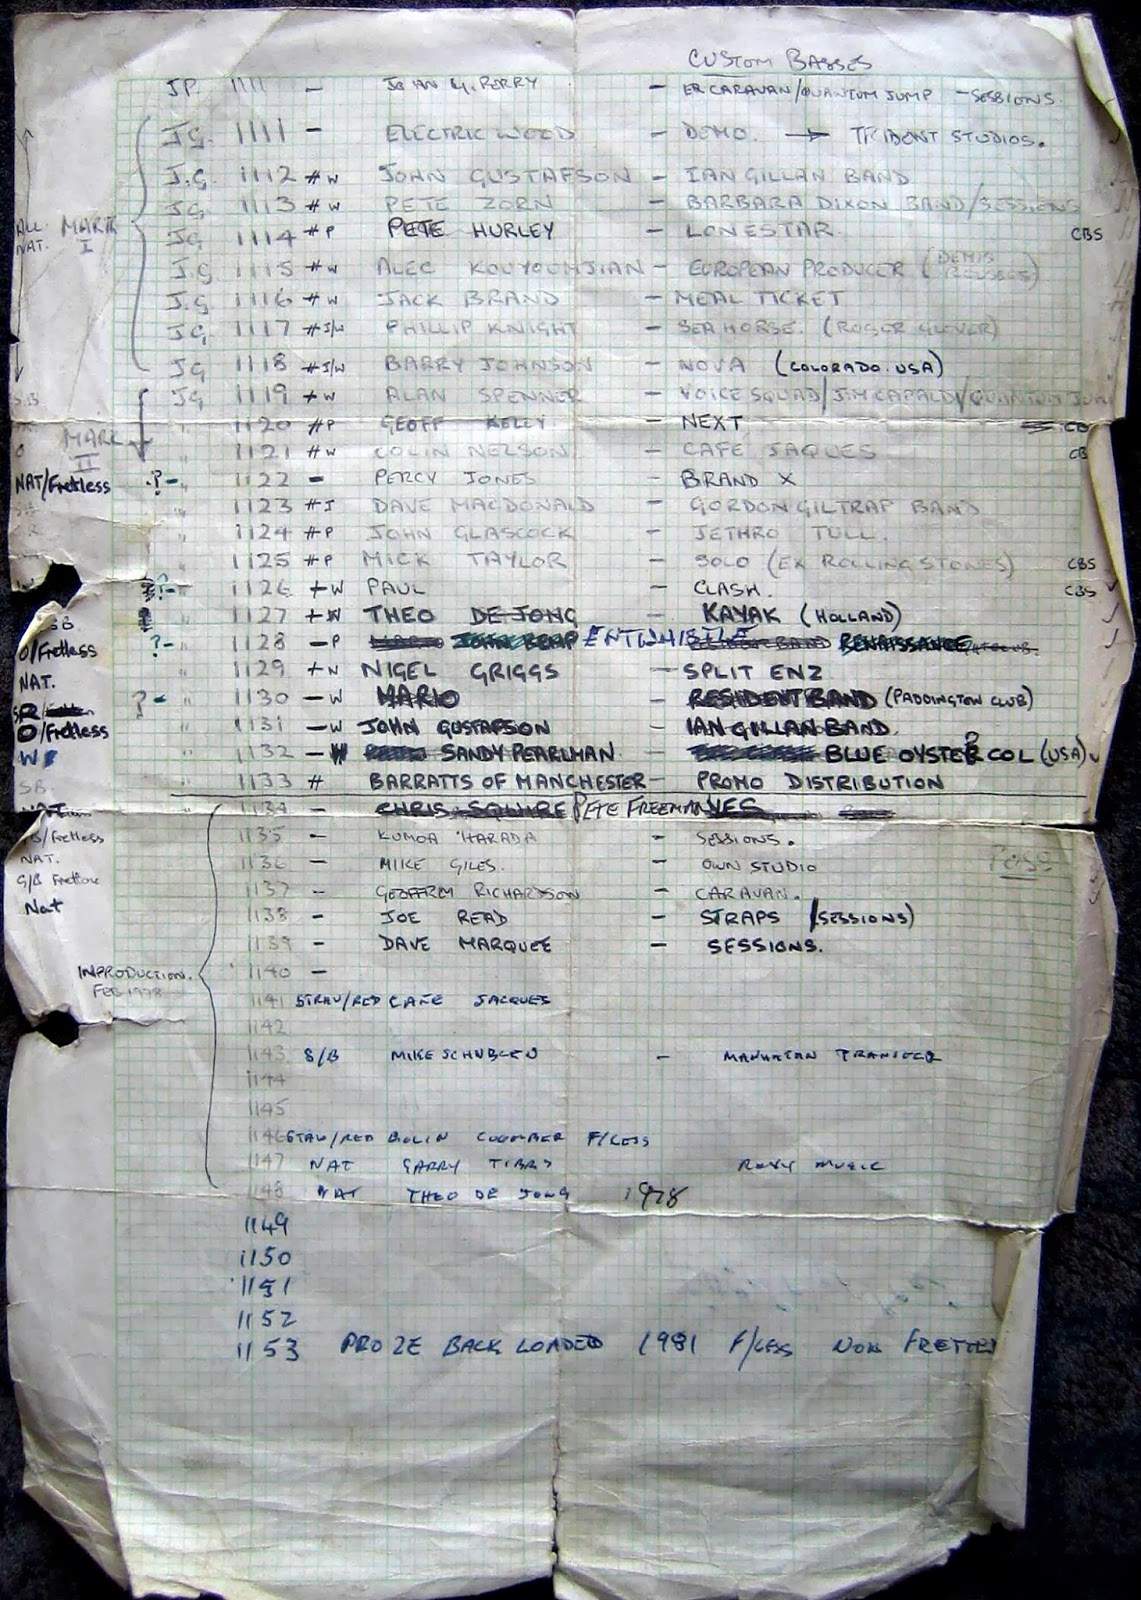 CUSTOM BASSES
JP. 1111 - JOHN G. PERRY - EX CARAVAN/QUANTUM JUMP - SESSIONS.
JG. 1111 - ELECTRIC WOOD - DEMO. → TRIDENT STUDIOS.
J.G 1112 # W JOHN GUSTAFSON - IAN GILLAN BAND
JG 1113 # W PETE ZORN - BARBARA DIXON BAND/SESSIONS
ALL NAT. MARK I JG 1114 # P PETE HURLEY - LONESTAR. CBS
J.G 1115 # W ALEC KOUYOUMJIAN - EUROPEAN PRODUCER (DEMIS ROUSSOS)
J.G 1116 # W JACK BRAND - MEAL TICKET
JG 1117 # I/W PHILLIP KNIGHT - SEAHORSE. (ROGER GLOVER)
JG 1118 # I/W BARRY JOHNSON - NOVA (COLORADO. USA)
S.B JG 1119 + W ALAN SPENNER - VOICE SQUAD/JIM CAPALDI/QUANTUM JUM
" 1120 # P GEOFF KELLY - NEXT CB
O MARK II " 1121 # W COLIN NELSON - CAFE JAQUES CB
NAT/Fretless ·?- " 1122 - PERCY JONES - BRAND X
" 1123 # I DAVE MACDONALD - GORDON GILTRAP BAND
" 1124 # P JOHN GLASCOCK - JETHRO TULL.
" 1125 # P MICK TAYLOR - SOLO (EX ROLLING STONES) CBS
W ?- " 1126 + W PAUL - CLASH. CBS ✓
SB. " 1127 + W THEO DE JONG - KAYAK (HOLLAND)
O/Fretless ?- " 1128 - P JOHN ENTWHISTLE RENAISSANCE
NAT. " 1129 + W NIGEL GRIGGS - SPLIT ENZ
SR ?- " 1130 - W MARIO - RESIDENT BAND (PADDINGTON CLUB)
O/Fretless " 1131 - W JOHN GUSTAFSON - IAN GILLAN BAND.
W " 1132 - W SANDY PEARLMAN - BLUE OYSTER COL ? (USA)
SB " 1133 # BARRATTS OF MANCHESTER - PROMO DISTRIBUTION
NAT. 1134 - CHRIS SQUIRE PETE FREEMAN YES
/Fretless 1135 - KUMOA HARADA - SESSIONS.
NAT. 1136 - MIKE GILES. - OWN STUDIO
S/B Fretless 1137 - GEOFFREY RICHARDSON - CARAVAN.
Nat 1138 - JOE READ - STRAPS (SESSIONS)
1139 - DAVE MARQUEE - SESSIONS.
INPRODUCTION. FEB 1978 1140 -
1141 STRAW/RED CAFE JACQUES
1142
1143 S/B MIKE SCHUBLEN - MANHATAN TRANSFER
1144
1145
1146 STAW/RED F/LESS
1147 NAT GARRY TIBBS ROXY MUSIC
1148 NAT THEO DE JONG 1978
1149
1150
1151
1152
1153 BACK LOADED 1981 F/LESS NOW FRETTED